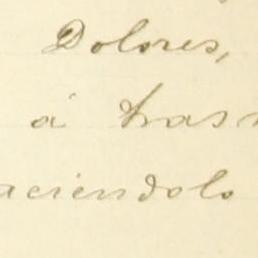 Dolores,
á tras
aciendolo